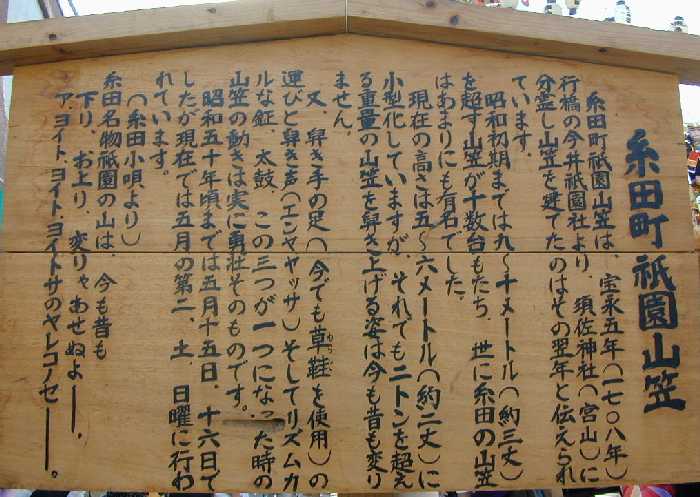 糸田町祇園山笠
糸田町祇園山笠は、宝永五年(一七〇八年)に
行橋の今井祇園社より、須佐神社(宮山)に
分霊し山笠を建てたのはその翌年と伝えられ
ています。
昭和初期までは九〜十メートル(約三丈)
を超す山笠が十数台もたち、世に糸田の山笠
はあまりにも有名でした。
現在の高さは五〜六メートル(約二丈)に
小型化していますが、それでも二トンを超え
る重量の山笠を舁き上げる姿は今も昔も変り
ません。
又、舁き手の足(今でも草鞋を使用)の
わらじ
運びと舁き声(エンヤヤッサ)そしてリズムカ
ルな鉦、太鼓、この三つが一つになった時の
山笠の動きは実に勇壮そのものです。
昭和五十年頃までは五月十五日、十六日で
したが現在では五月の第二、土、日曜に行わ
れています。
(糸田小唄より)
糸田名物祇園の山は、今も昔も
下り、お上り、変りゃあせぬよー、
ア、ヨイト、ヨイト、ヨイトサのヤレコノセー。